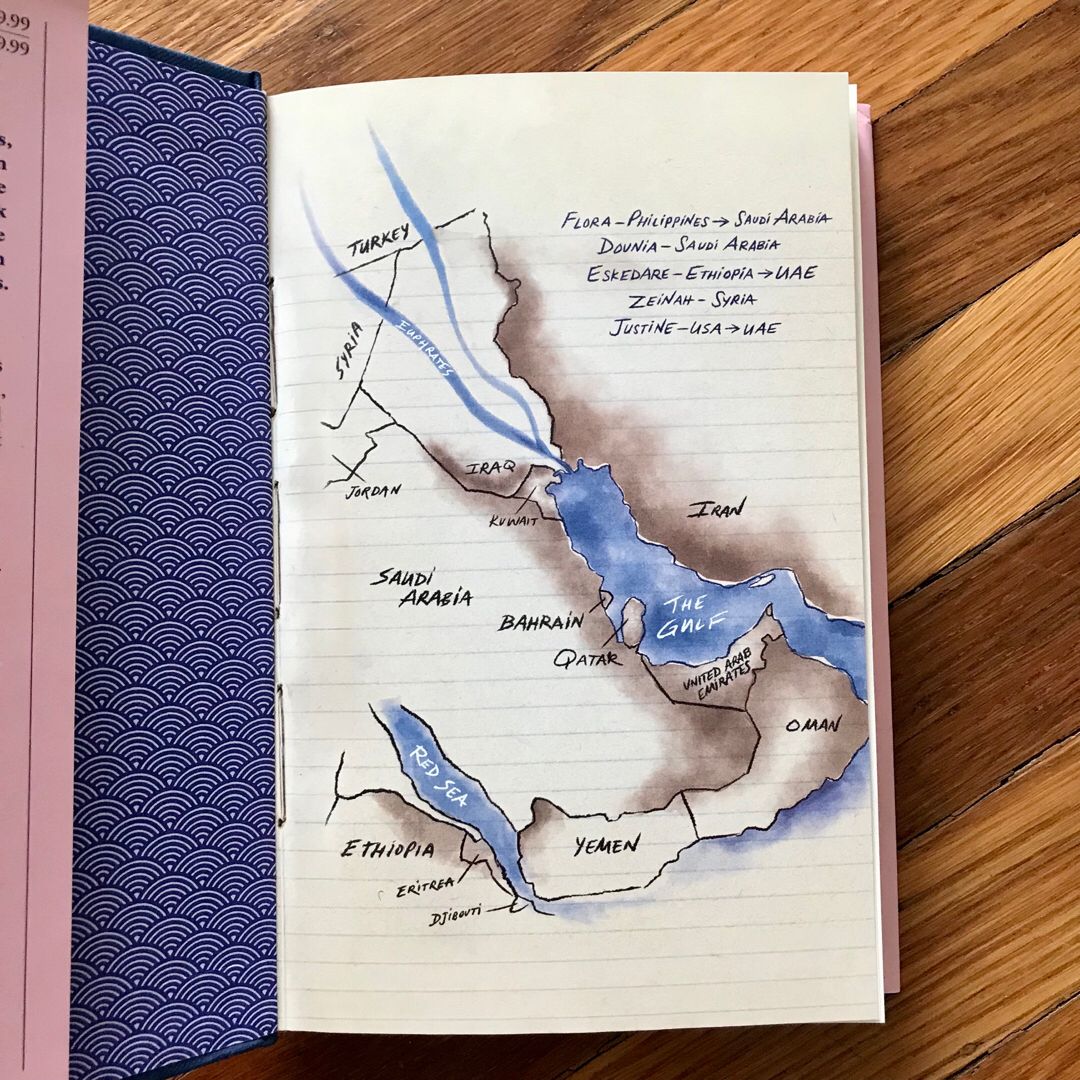 9.99
9.99
s,
n
e
k
e
n
s.
s
,
t
FLORA – PHILIPPINES → SAUDI ARABIA
DOUNIA – SAUDI ARABIA
ESKEDARE – ETHIOPIA → UAE
ZEINAH – SYRIA
JUSTINE – USA → UAE
TURKEY
SYRIA
EUPHRATES
IRAQ
JORDAN
KUWAIT
IRAN
SAUDI
ARABIA
BAHRAIN
THE
GULF
QATAR
UNITED ARAB
EMIRATES
OMAN
RED SEA
ETHIOPIA
YEMEN
ERITREA
DJIBOUTI